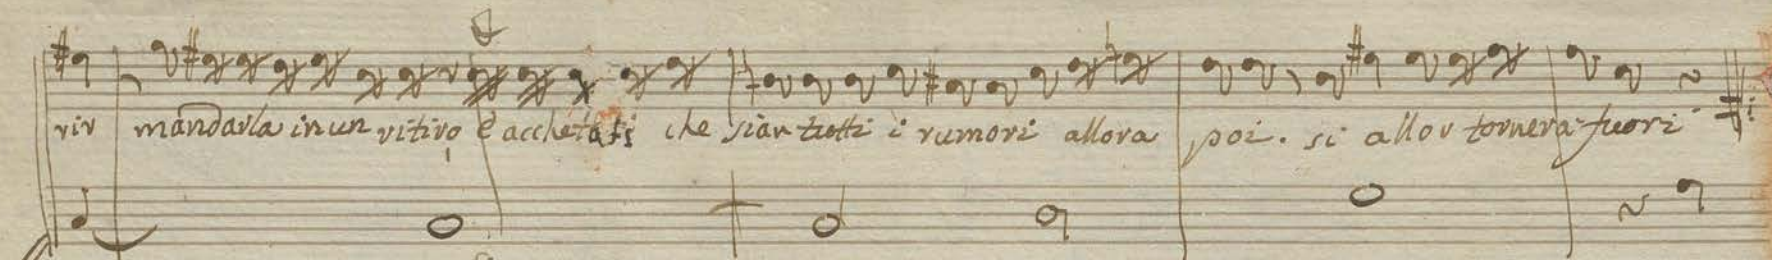 rir mandarla in un ritiro e acchetati che sian tutti i rumori allora poi. si allor tornera fuori